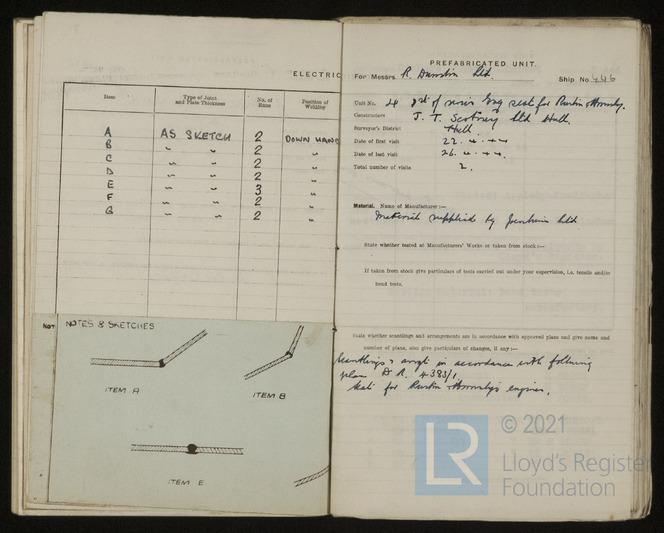 ELECTRIC
Item
Type of Joint and Plate Thickness
No. of Runs
Position of Welding
A AS SKETCH 2 DOWN HAND
B " " 2 "
C " " 2 "
D " " 2 "
E " " 3 "
F " " 2 "
G " " 2 "
NOT
NOTES & SKETCHES
ITEM A
ITEM B
ITEM E
PREFABRICATED UNIT.
For Messrs. R. Dunston Ltd. Ship No. 446
Unit No. 4 of Eng seat for Ruston Hornsby.
Constructors J. T. Ltd Hull.
Surveyor's District Hull.
Date of first visit 22. 4. 44
Date of last visit 26. 4. 44.
Total number of visits 2.
Material. Name of Manufacturer:—
Material supplied by Ltd
State whether tested at Manufacturers' Works or taken from stock:—
If taken from stock give particulars of tests carried out under your supervision, i.e. tensile and/or
bend tests.
State whether scantlings and arrangements are in accordance with approved plans and give name and
number of plans, also give particulars of changes, if any:—
Scantlings & arrgts in accordance with following
plan D R. 4383/1
Seat for Ruston Hornsby's engines.
LR
© 2021
Lloyd's Register
Foundation